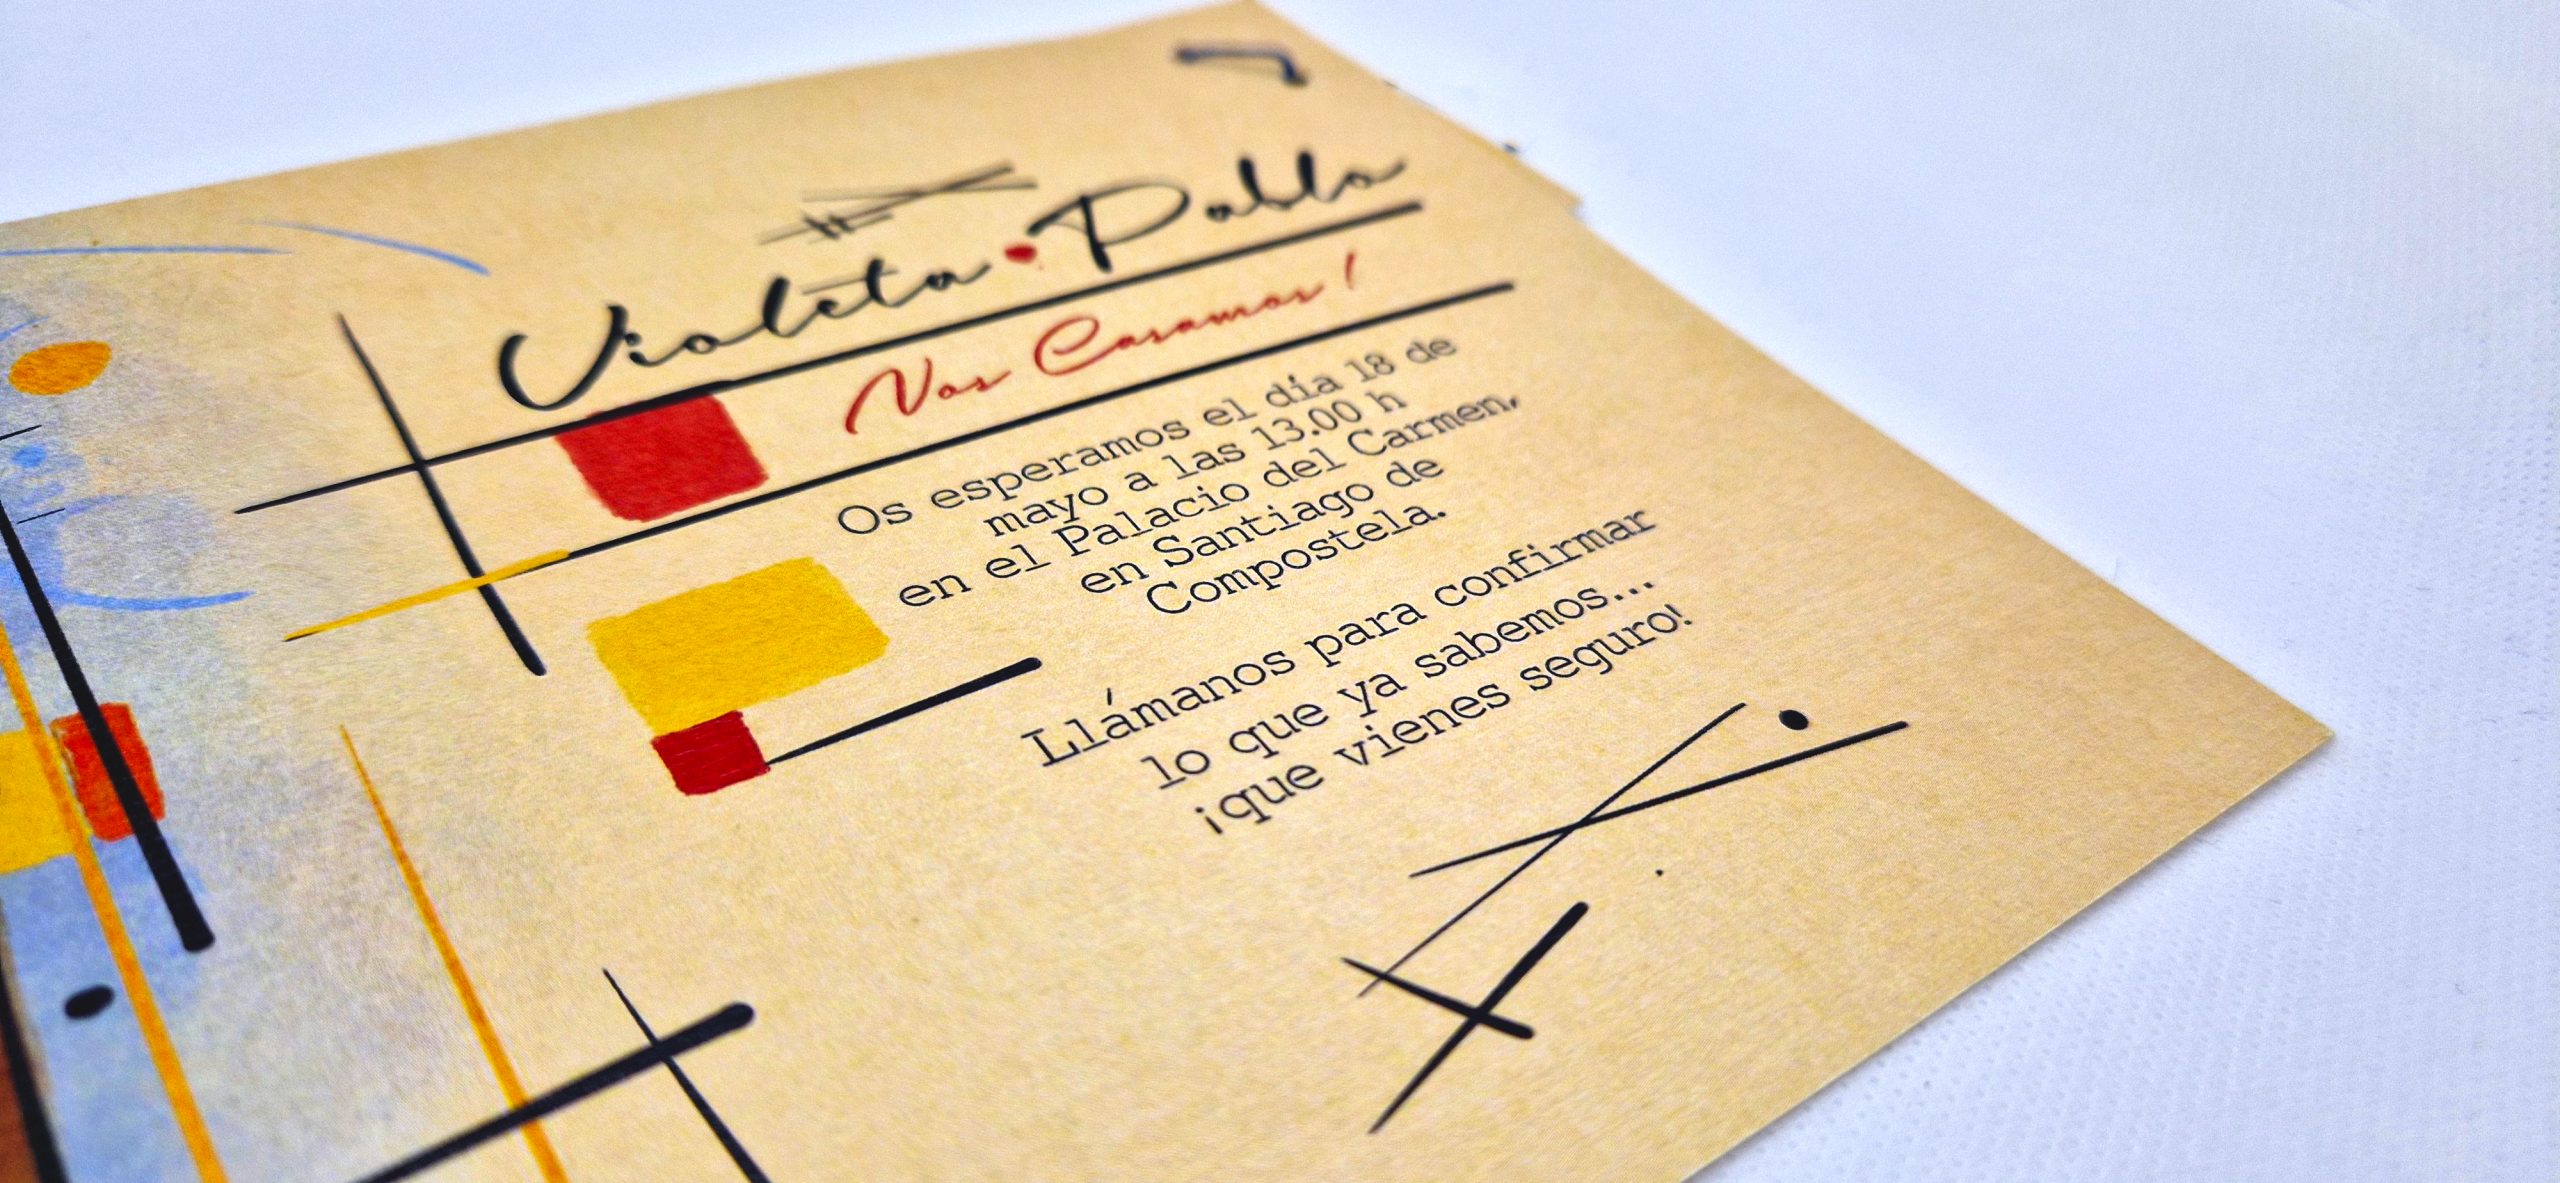 Violeta • Pablo
Nos Casamos!
Os esperamos el día 18 de
mayo a las 13.00 h
en el Palacio del Carmen,
en Santiago de
Compostela.
Llámanos para confirmar
lo que ya sabemos...
¡que vienes seguro!